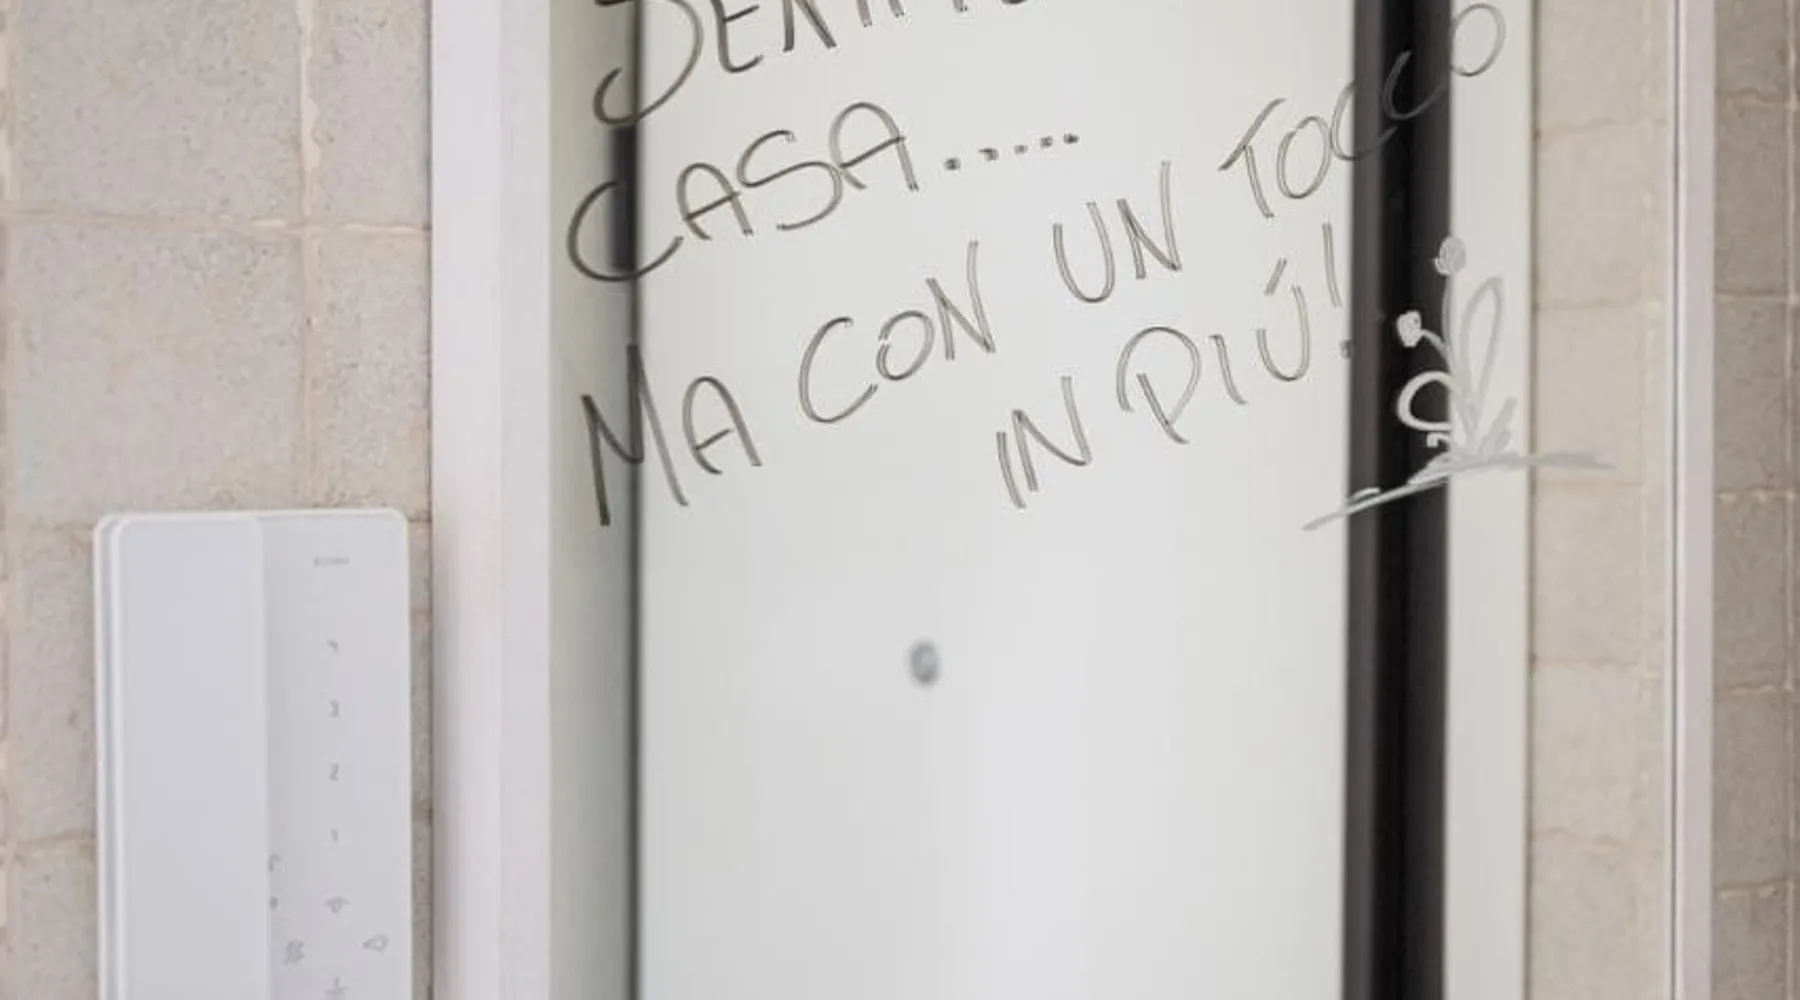 CASA.....
MA CON UN TOCCO
IN PIÚ!
3
2
1